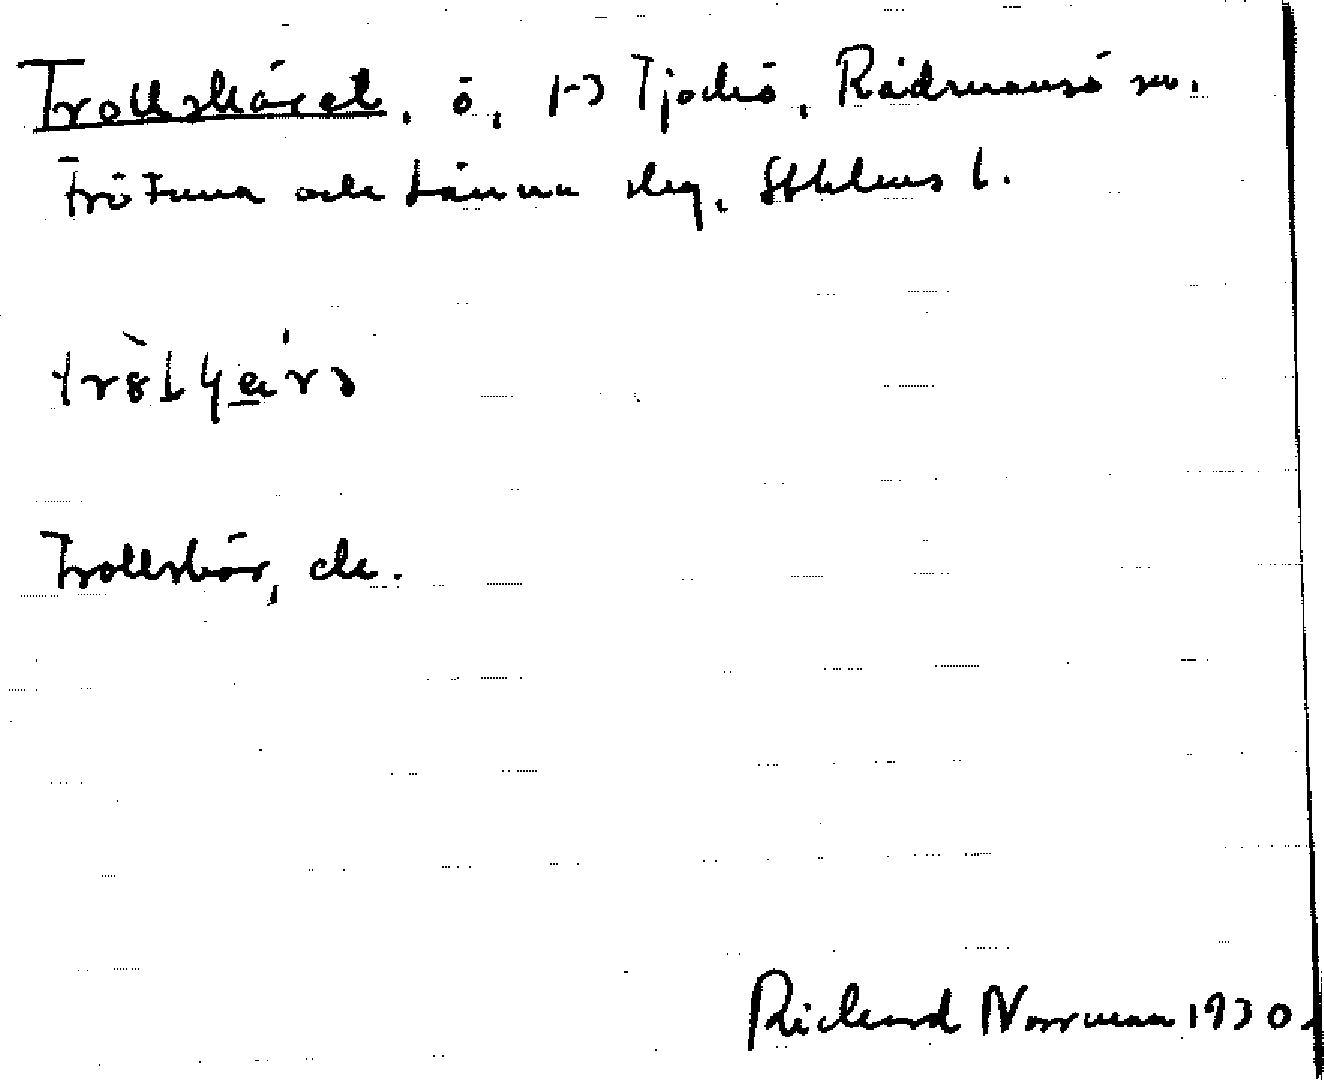 Trollskäret, ö, Tjockö, Rådmansö sn.
Frötuna och Länna slg, Sthlms l.
Trollskär, do.
Richard Norrman 1930.